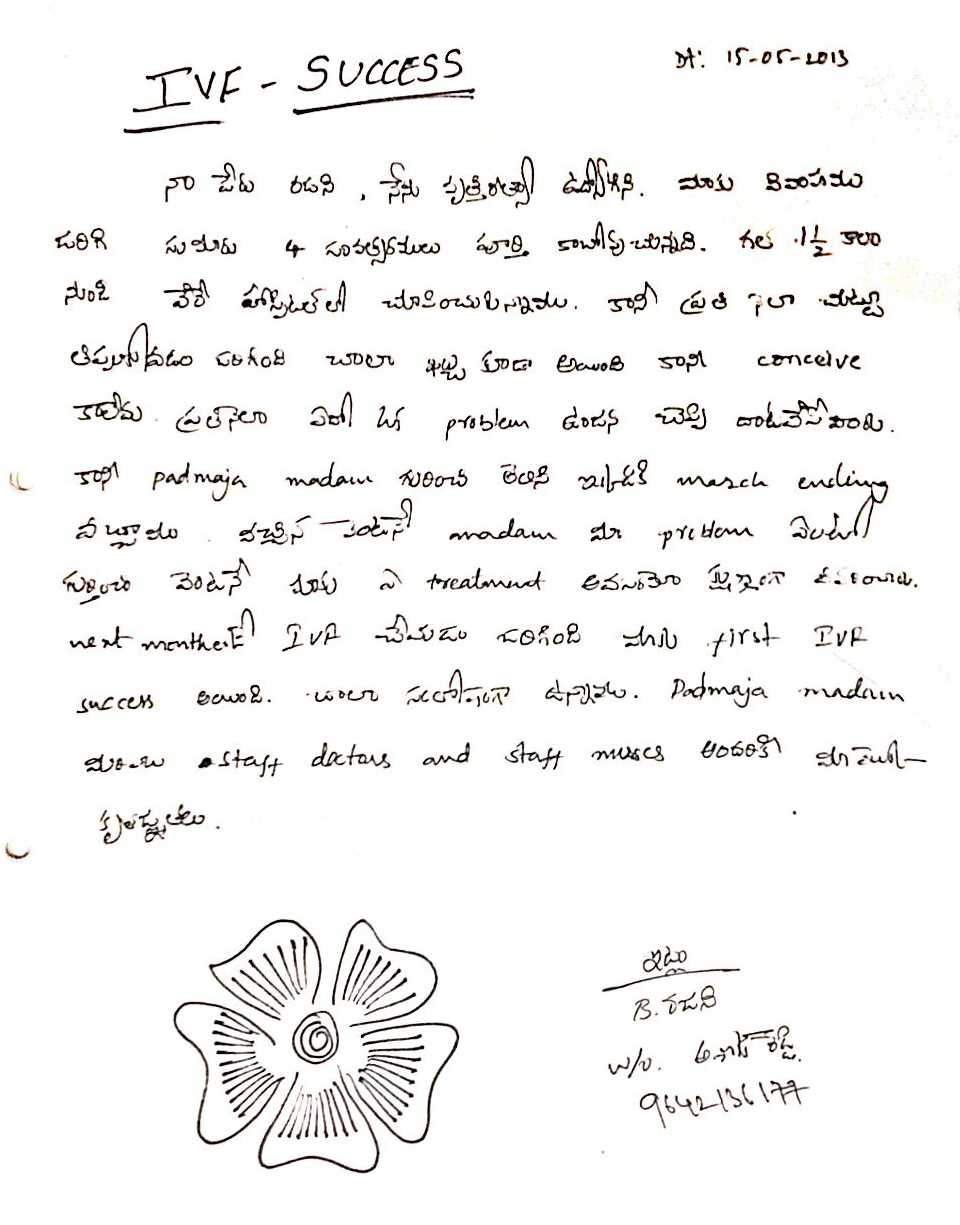 Dt: 15-05-2013
IVF - SUCCESS
నా పేరు రజని, నేను ఉద్యోగిని. మాకు వివాహము
జరిగి సుమారు 4 సంవత్సరములు పూర్తి కాబోవుచున్నది. గత 1½ కాలం
నుండి వేరే హాస్పిటల్ లో చూపించుకున్నాము. కానీ ప్రతి నెలా చుట్టూ
తిప్పుకోవడం జరిగింది చాలా ఖర్చు కూడా అయింది కాని conceive
కాలేదు. ప్రతినెలా ఏదో ఒక problem ఉందని చెప్పి దాటవేసేవారు.
కానీ padmaja madam గురించి తెలిసి ఇక్కడికి march ending
వచ్చాము. వచ్చిన వెంటనే madam మా problem ఏంటో
గుర్తించి వెంటనే మాకు ఏ treatment అవసరమో క్షుణ్ణంగా వివరించారు.
next month లోనే IVF చేయడం జరిగింది మాకు first IVF
success అయింది. చాలా సంతోషంగా ఉన్నాము. Padmaja madam
మరియు staff doctors and staff nurses అందరికీ మా
కృతజ్ఞతలు.
ఇట్లు
B. రజని
W/o. అశోక్ రెడ్డి.
9642136177